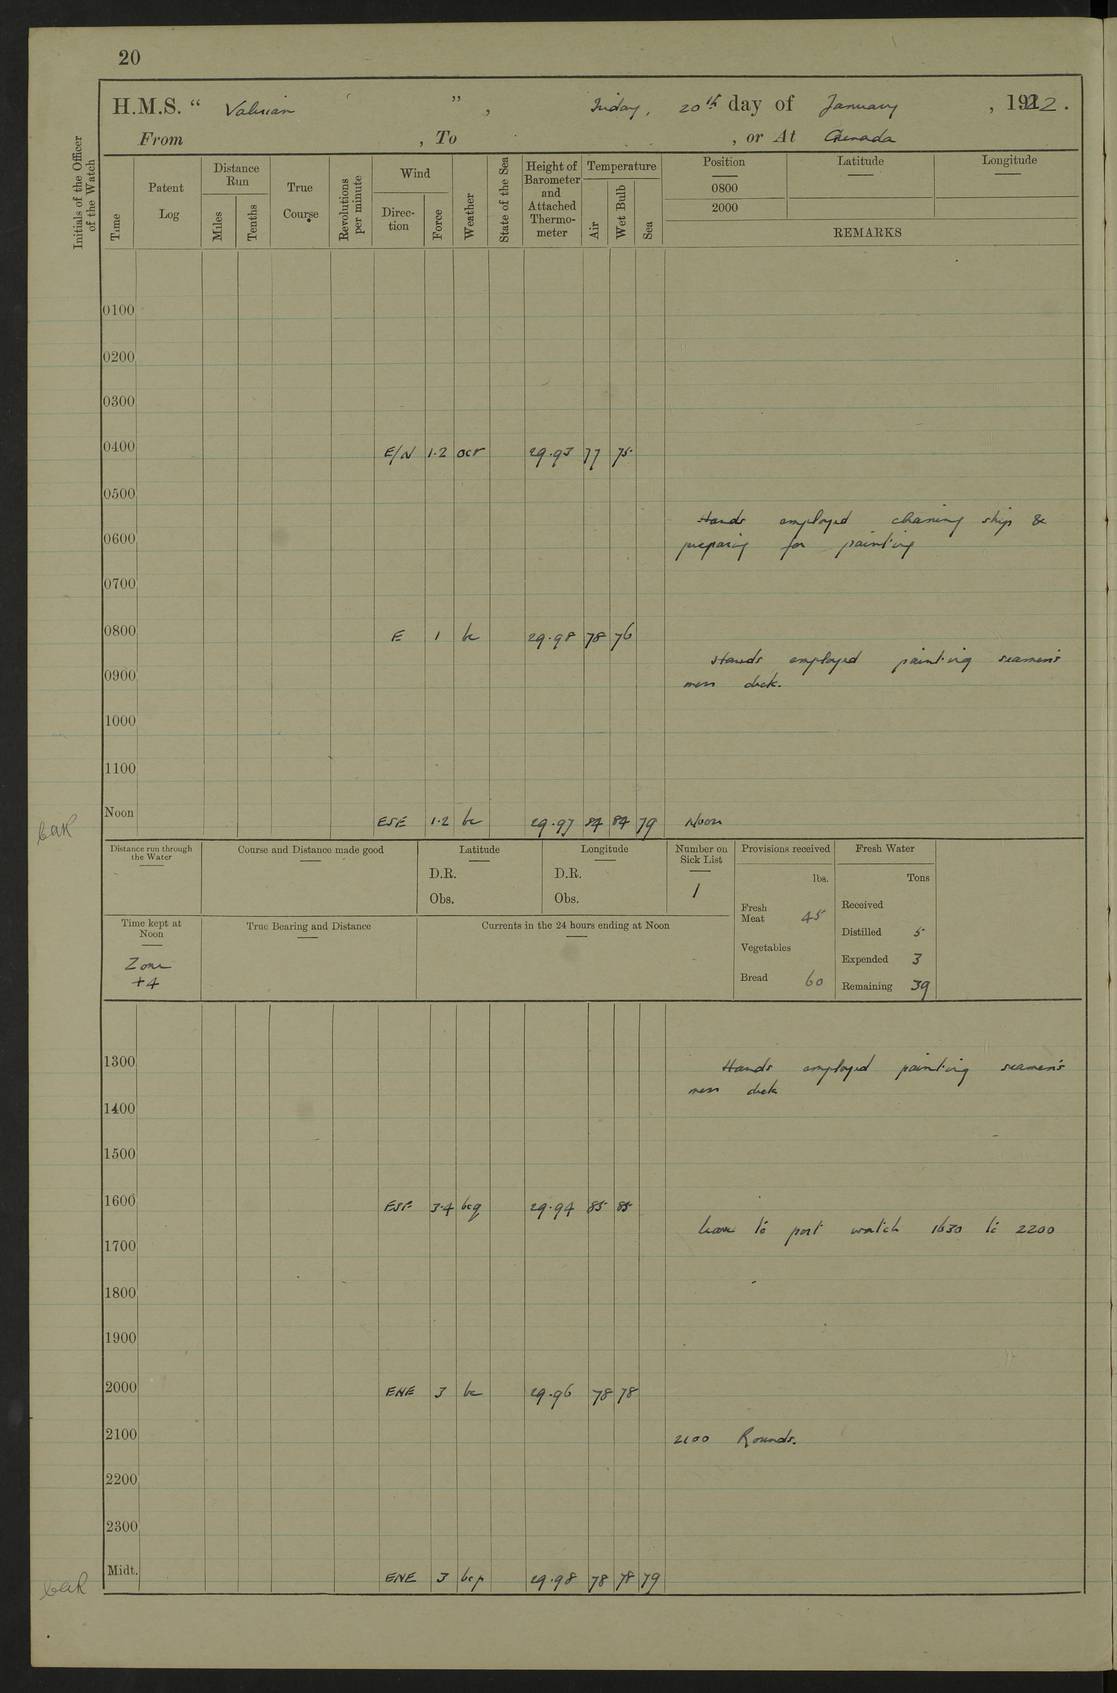 20
H.M.S. " Valerian " , Friday, 20th day of January , 1922.
From , To , or At Grenada
Initials of the Officer of the Watch
Time
Patent Log
Distance Run
Miles
Tenths
True Course
Revolutions per minute
Wind
Direction
Force
Weather
State of the Sea
Height of Barometer and Attached Thermometer
Temperature
Air
Wet Bulb
Sea
Position Latitude Longitude
0800
2000
REMARKS
0100
0200
0300
0400 E/N 1·2 ocr 29.95 77 75
0500
Hands employed cleaning ship &
0600 preparing for painting
0700
0800 E 1 bc 29.98 78 76
Hands employed painting seamen's
0900 mess deck.
1000
1100
Noon ESE 1·2 bc 29.97 84 84 79 Noon
Distance run through the Water
Course and Distance made good
Latitude
D.R.
Obs.
Longitude
D.R.
Obs.
Number on Sick List
1
Provisions received
lbs.
Fresh Meat 45
Vegetables
Bread 60
Fresh Water
Tons
Received
Distilled 5
Expended 3
Remaining 39
Time kept at Noon
Zone
+4
True Bearing and Distance
Currents in the 24 hours ending at Noon
1300 Hands employed painting seamen's
mess deck
1400
1500
1600 ESE 3·4 bcq 29.94 85 85
Leave to port watch 1630 to 2200
1700
1800
1900
2000 ENE 3 bc 29.96 78 78
2100 2100 Rounds.
2200
2300
Midt. ENE 3 bcp 29.98 78 78 79